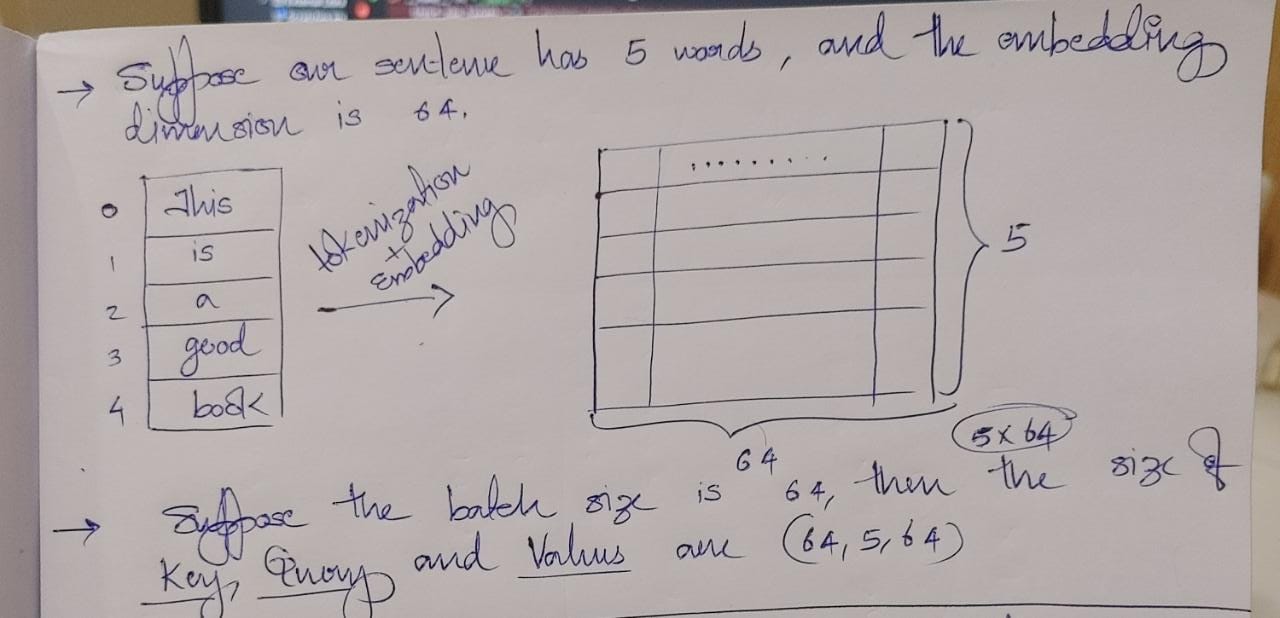 → Suppose our sentence has 5 words, and the embedding
dimension is 64.
0 This
1 is
2 a
3 good
4 book
tokenization
+
Embedding
→
.........
5
64
5×64
→ Suppose the batch size is 64, then the size of
Key, Query and Values are (64, 5, 64)